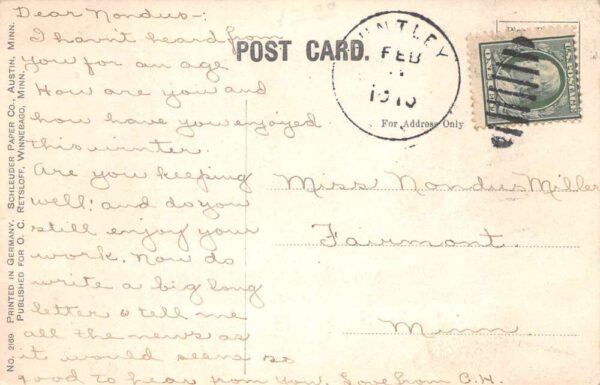 Dear Nondus-:
I havn't heard from
you for an age
How are you and
how have you enjoyed
this winter.
Are you keeping
well? and do you
still enjoy your
work. Now do
write a big long
letter & tell me
all the news as
it would seem so
good to hear from you. Love from C.H.
POST CARD.
HUNTLEY
FEB
1910
For Address Only
U.S. POSTAGE
Miss Nondus Miller
Fairmont.
Minn.
No. 2169 PRINTED IN GERMANY. SCHLEUDER PAPER CO., AUSTIN, MINN.
PUBLISHED FOR O. C. RETSLOFF, WINNEBAGO, MINN.